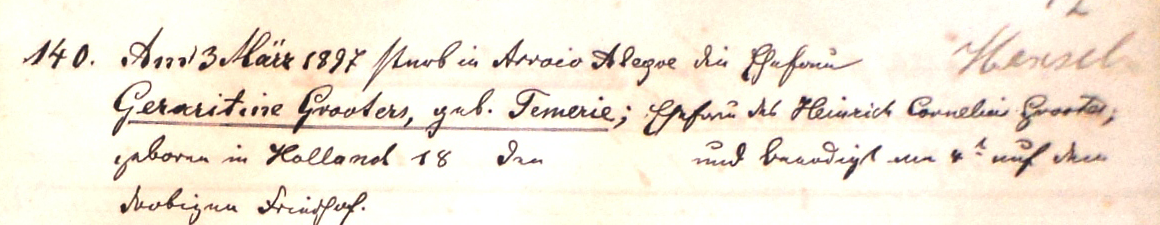 140. Am 3 März 1897 starb in Arroio Alegre die Ehefrau Hensel
Geraritine Grooters, geb. Temerie; Ehefrau des Heinrich Cornelius Grooters,
geboren in Holland 18 den und beerdigt am 4t auf dem
dortigen Friedhof.